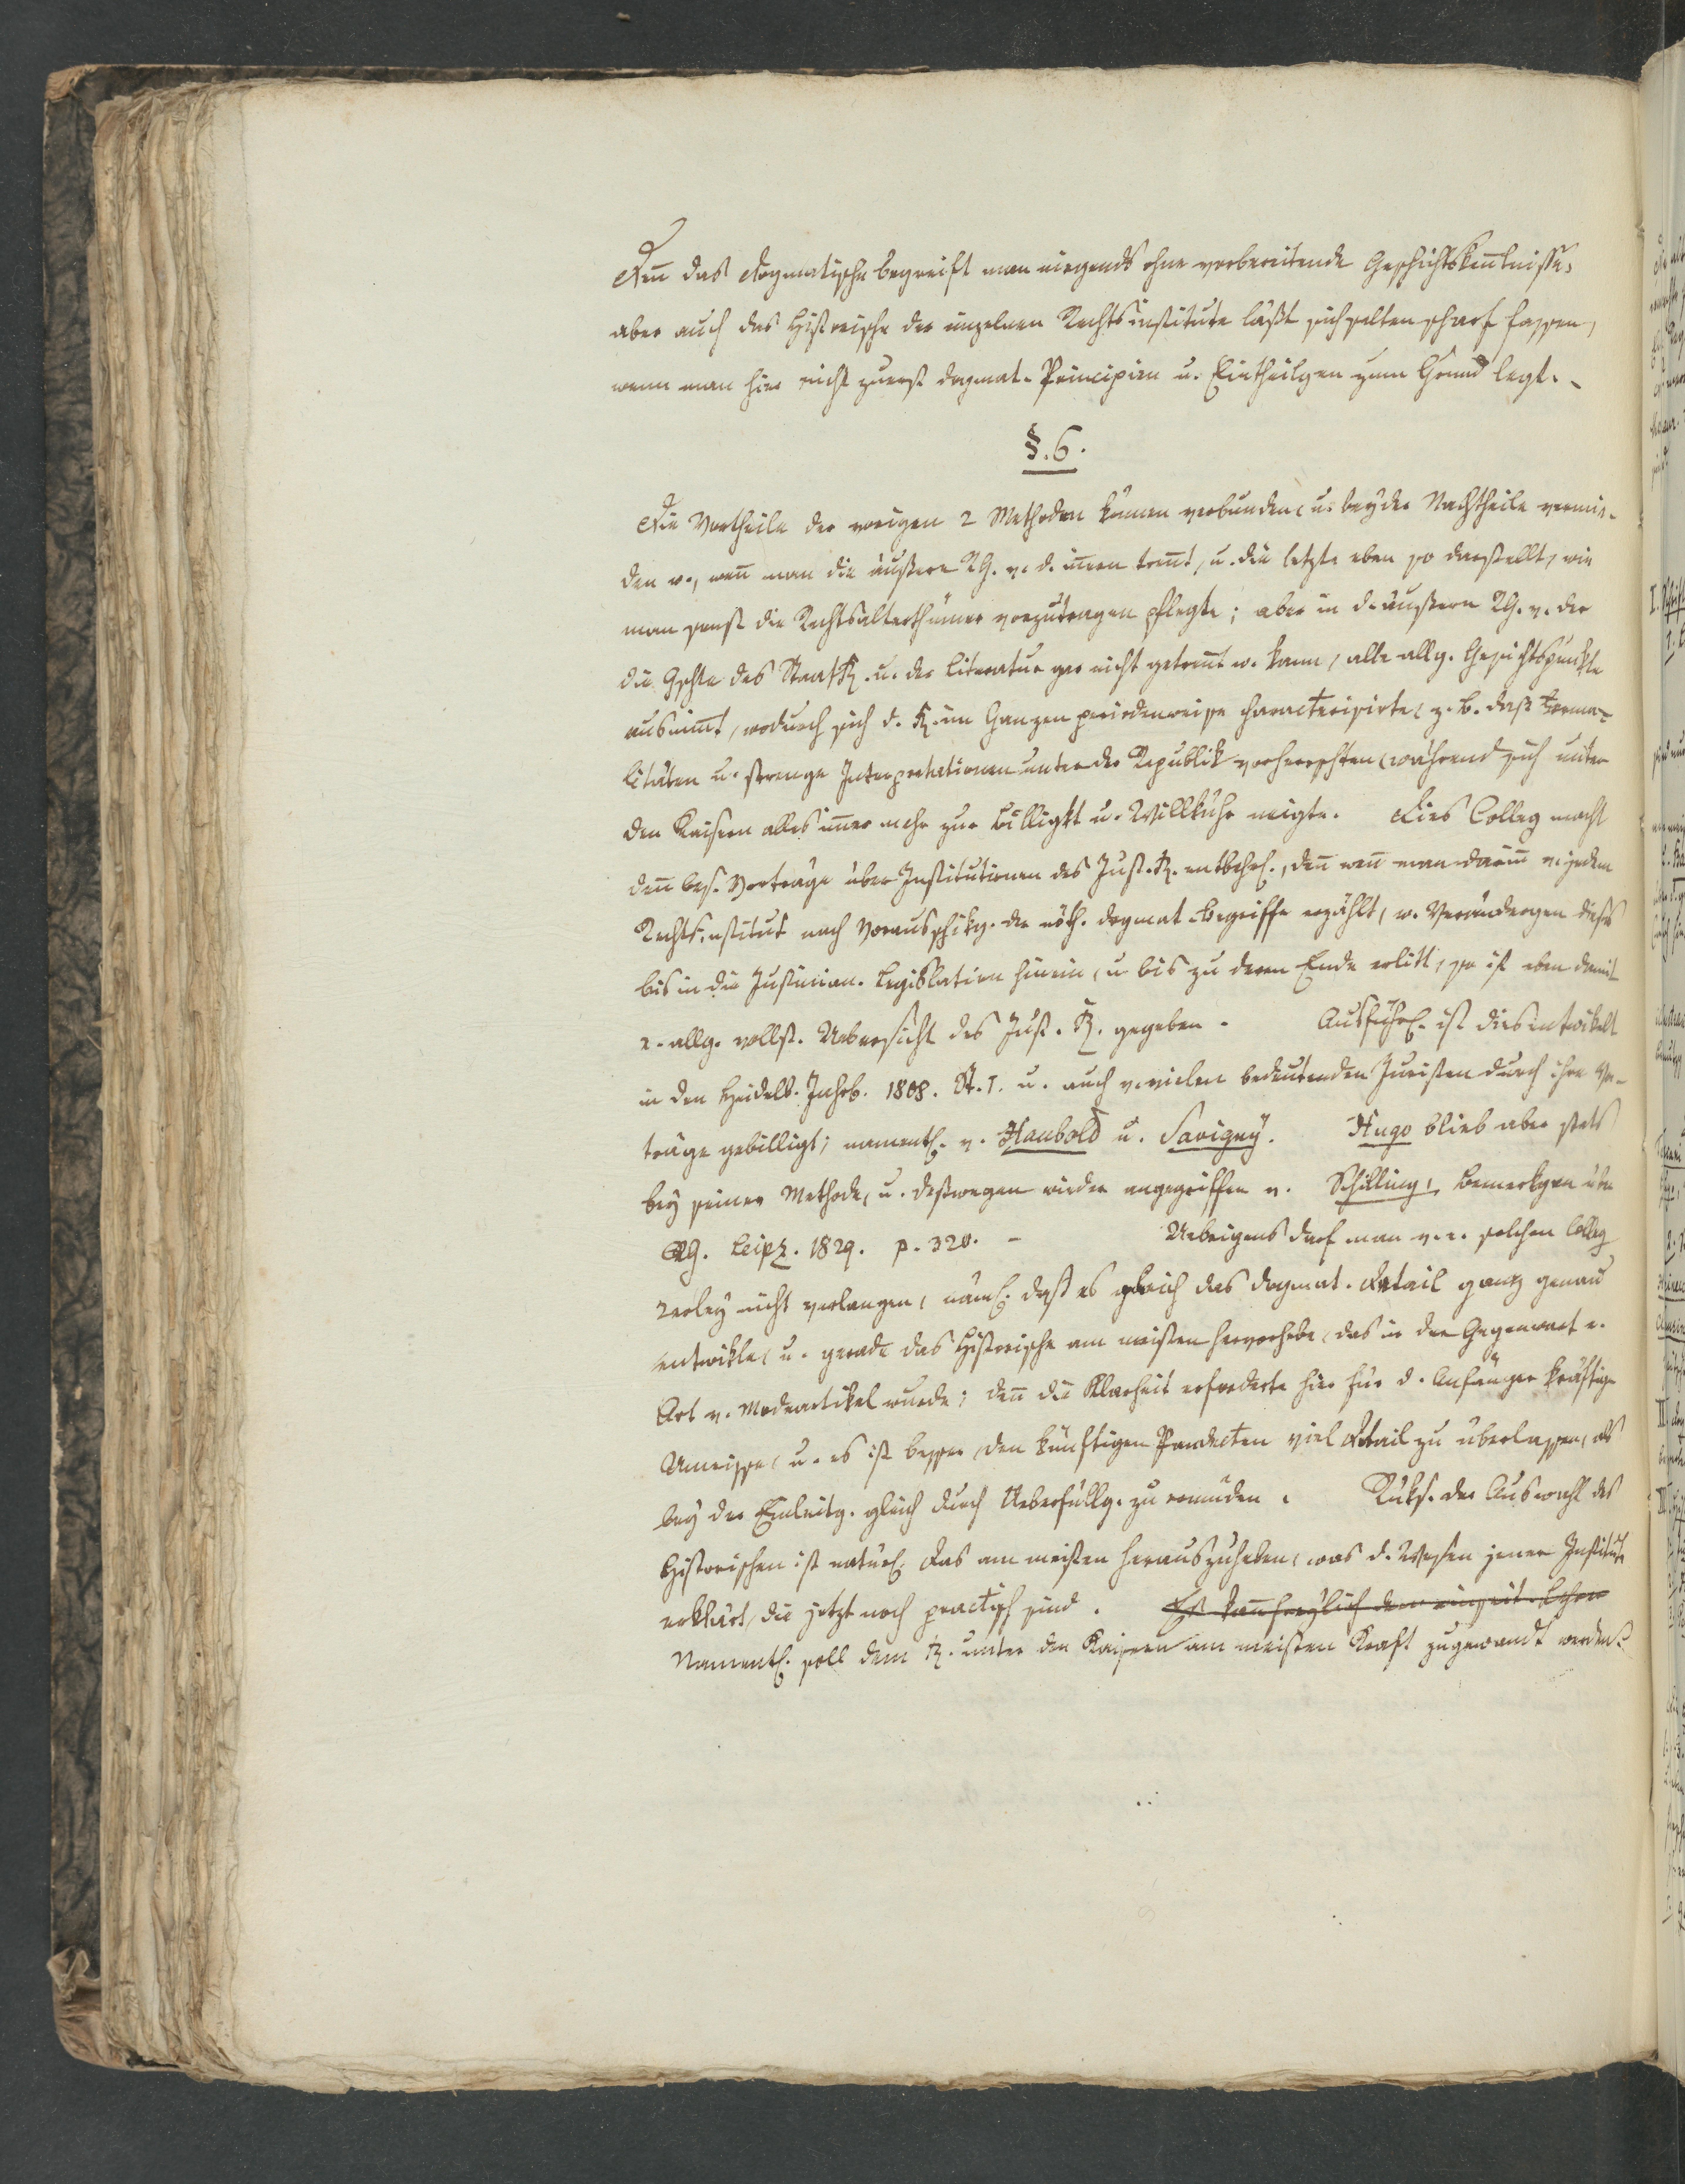 Deñ das Dogmatische begreift man nirgends ohne vorbereitende Geschichtskeñtnisse,
aber auch das Historische der einzelnen Rechtsinstitute läßt sich selten scharf fassen,
wenn man hier nicht zuerst dogmat. Principien u. Eintheilgen zum Grund legt. -
§. 6.
Die Vortheile der vorigen 2 Methoden können verbunden, u. beyder Nachtheile vermie-
den w., weñ man die äußere RG. v. d. iñern treñt, u. die letzte eben so darstellt, wie
man sonst die Rechtsalterthümer vorzutragen pflegte; aber in d. äußern RG. v. der
die Gschte des Staats R. u. der Literatur gar nicht getreñt w. kann, alle allg. Gesichtspunkte
ausnim̃t, wodurch sich d. R. im Ganzen periodenweise characterisirte, z. B. daß Forma-
litäten u. strenge Interpretationen unter der Republik vorherrschten, während sich unter
den Kaisern alles im̃er mehr zur Billigkt u. Willkühr neigte. Dies Colleg macht
deñ bes. Vorträge über Institutionen des Just. R. entbehrl., deñ weñ man dariñ v. jedem
Rechtsinstitut nach Vorausschikg. der nöth. dogmat. Begriffe erzählt, w. Verändergen dieses
bis in die Justinian. Legislation hinein, u bis zu deren Ende erlitt, so ist eben damit
e. allg. vollst. Uebersicht des Just. R. gegeben. Ausführl. ist dies entwikelt
in den Heidelb. Jahrb. 1808. St. 1. u. auch v. vielen bedeutenden Juristen durch ihre Vor-
träge gebilligt; namentl. v. Haubold u. Savigny. Hugo blieb aber stets
bey seiner Methode, u. deßwegen wieder angegriffen v. Schilling, Bemerkgen über
RG. Leipz. 1829. p. 320. - Uebrigens darf man v. e. solchen Colleg
2erley nicht verlangen, näml. daß es gleich das dogmat. Detail ganz genau
entwikle, u. gerade das Historische am meisten hervorhebe, das in der Gegenwart e.
Art v. Modeartikel wurde; deñ die Klarheit erforderte hier für d. Anfänger kräftige
Umrisse, u. es ist besser, den künftigen Pandecten viel Detail zu überlassen, als
bey der Einleitg. gleich durch Ueberfüllg. zu ermüden. Rüks. der Auswahl des
Historischen ist natürl. das am meisten herauszuheben, was d. Wesen jener Institute
erklärt, die jetzt noch practisch sind. Es kañ freylich
Namentl. soll dem R. unter den Kaisern am meisten Kraft zugewandt werden.